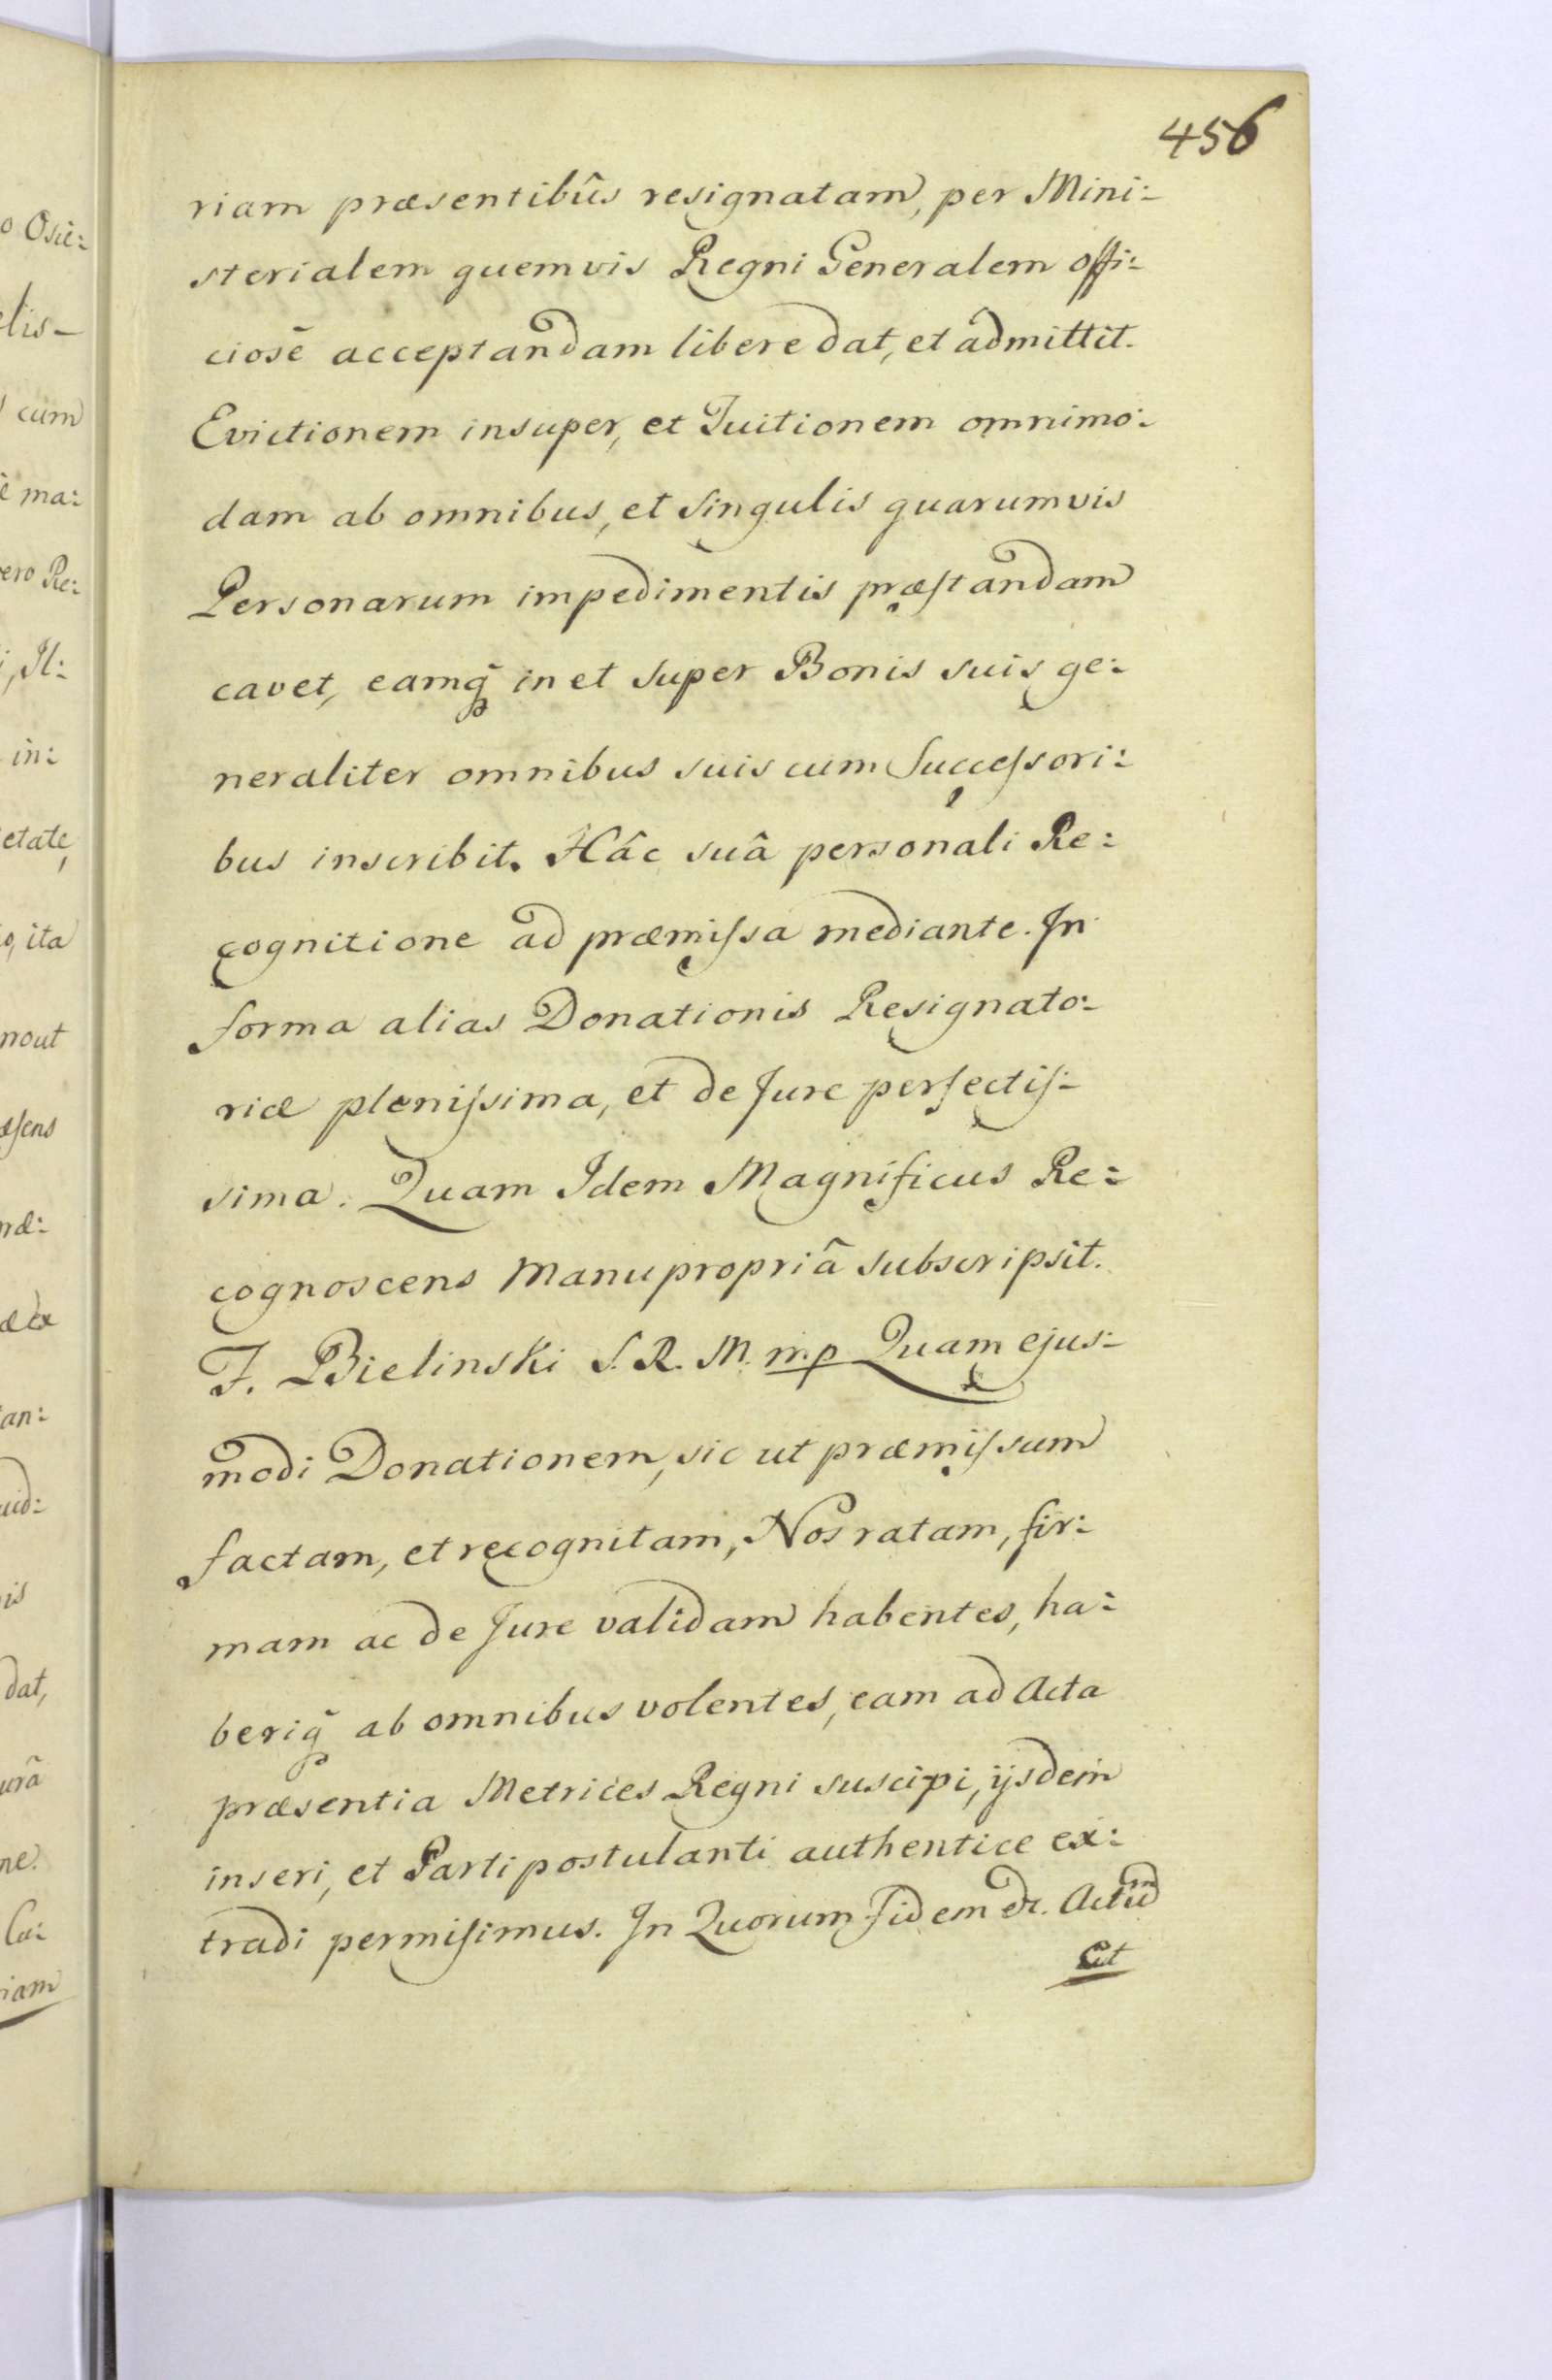 456
riam præsentibûs resignatam, per Mini:
sterialem quemvis Regni Generalem offi:
ciosē acceptandam libere dat, et admittit.
Evictionem insuper, et Tuitionem omnimo:
dam ab omnibus, et singulis quarumvis
Personarum impedimentis præstandam
cavet, eamq̃ in et super Bonis suis ge:
neraliter omnibus suis cum Successori:
bus inscribit. Hâc suâ personali Re:
cognitione ad præmissa mediante. In
forma alias Donationis Resignato:
riæ plenissima, et de Jure perfectis:
sima. Quam Idem Magnificus Re:
cognoscens Manu propriâ subscripsit.
F. Bielinski S. R. M. mp Quam ejus:
modi Donationem, sic ut præmissum
factam, et recognitam, Nos ratam, fir:
mam ac de Jure validam habentes, ha:
beriq̃ ab omnibus volentes, eam ad Acta
præsentia Metrices Regni suscipi, ijsdem
inseri, et Parti postulanti authentice ex:
tradi permisimus. In Quorum Fidem &c. Actũ
Ut
o Osie:
elis
cum
e ma:
vero Re:
i, Il:
in:
etate
o, ita
nout
æsens
næ:
æ ex
tan:
uid:
is
dat,
urâ
ne.
Ca:
riam